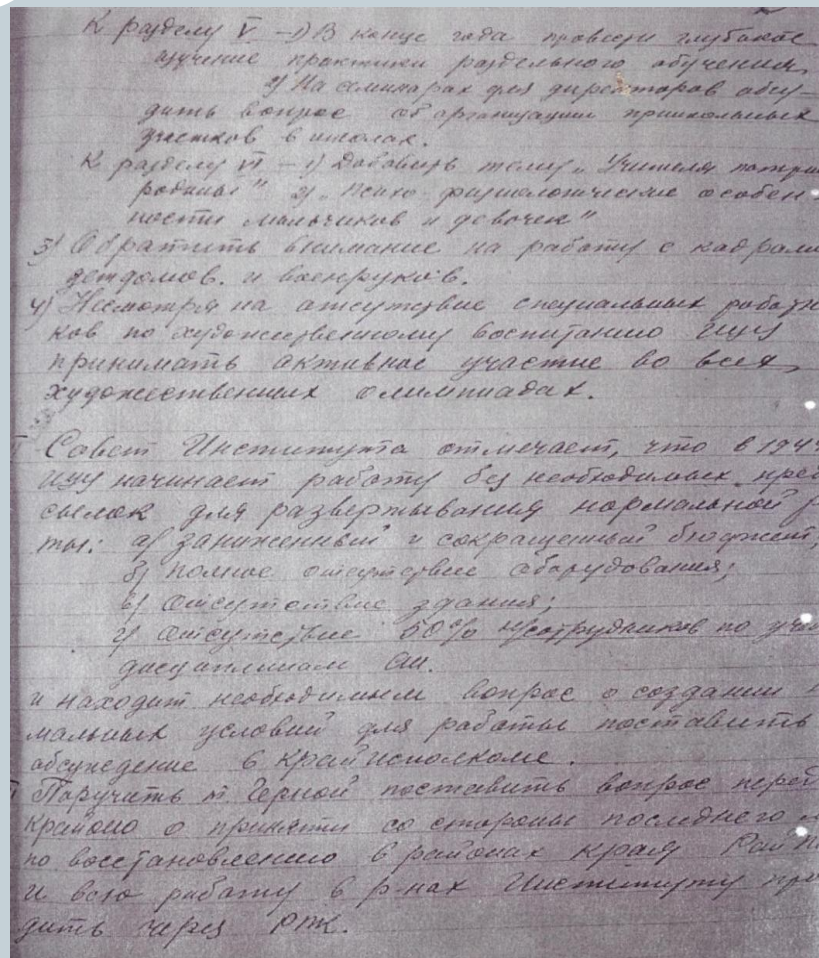 К разделу V – 1) В конце года провести глубокое
изучение практики раздельного обучения,
2) На семинарах для директоров обсу-
дить вопрос об организации пришкольных
участков в школах.
К разделу VI – 1) Добавить тему „Учителя патри
родины" 2) „Психо-физиологические особен-
ности мальчиков и девочек"
3) Обратить внимание на работу с кадрами
детдомов. и военруков.
4) Несмотря на отсутствие специальных работн
ков по художественному воспитанию ИУУ
принимать активное участие во всех
художественных олимпиадах.
Совет Института отмечает, что в 194
ИУУ начинает работу без необходимых пред
сылок для развертывания нормальной р
ты: а) заниженный и сокращенный бюджет;
б) полное отсутствие оборудования;
в) отсутствие здания;
г) отсутствие 50% н/сотрудников по уч
дисциплинам
и находит необходимым вопрос о создании
мальных условий для работы поставить
обсуждение в Крайисполкоме.
Поручить т. Черной поставить вопрос перед
крайоно о принятии со стороны последнего м
по восстановлению в районах края
и всю работу в р-нах Институту про
дить через РПК.